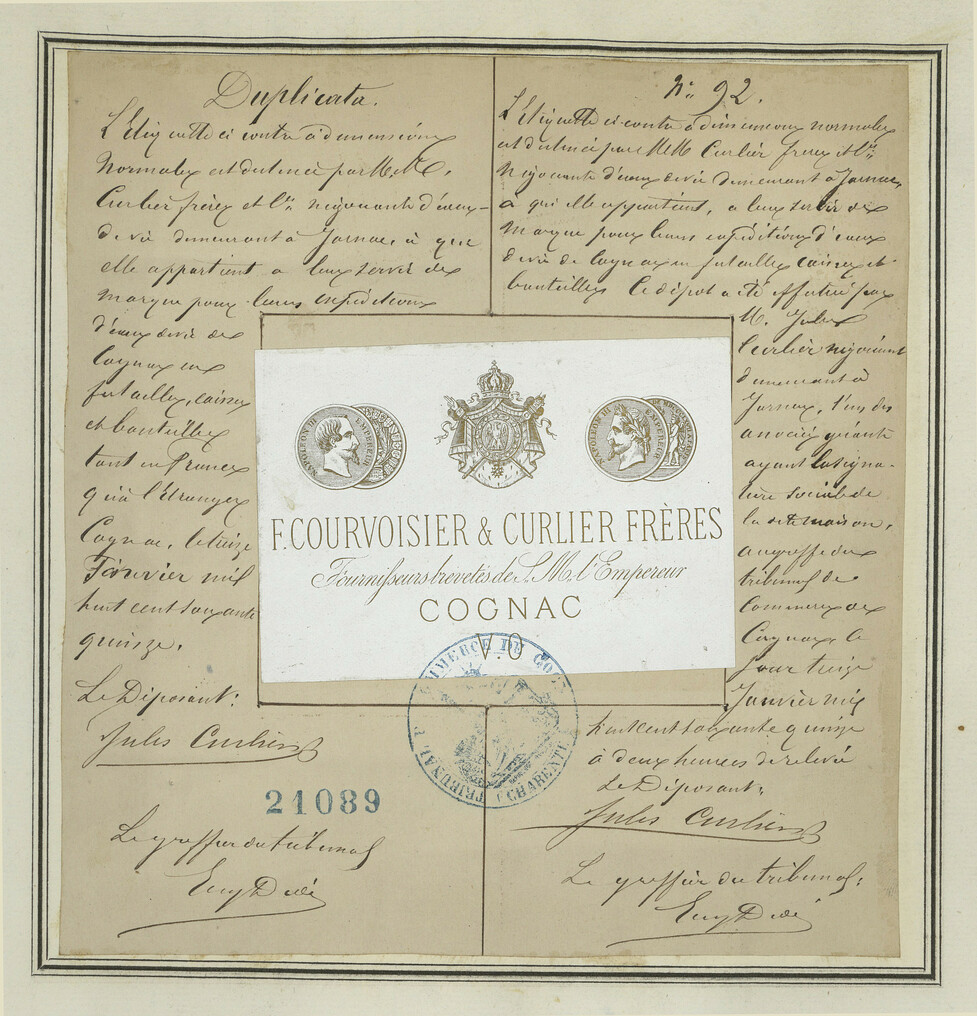 Duplicata.
L'Etiquette ci contre à dimensions
Normales est destinée par M.M.
Curlier frères et Cie négociants d'eaux-
de vie demeurant à Jarnac, à qui
elle appartient a leur servir de
marque pour leurs expéditions
d'eaux de vie de
Cognac en
futailles, caisses
et bouteilles
tant en France
qu'à l'étranger
Cognac, le treize
Janvier mil
huit cent soixante
quinze.
Le Déposant:
Jules Curlier
21089
Le greffier du tribunal
N° 92.
L'Etiquette ci-contre à dimensions normales
est destinée par M.M. Curlier frères et Cie
Négociants d'eaux de vie demeurant à Jarnac,
à qui elle appartient, a leur servir de
Marque pour leurs expéditions d'eaux
de vie de Cognac en futailles caisses et
bouteilles Le dépôt a été effectué par
M. Jules
Curlier négociant
demeurant à
Jarnac, l'un des
associés gérants
ayant la signa-
ture sociale de
la dite maison,
au greffe du
tribunal de
Commerce de
Cognac, le
jour treize
Janvier mil
huit cent soixante quinze
à deux heures de relevé
Le Déposant:
Jules Curlier
Le greffier du tribunal:
NAPOLEON III EMPEREUR
NAPOLEON III EMPEREUR
F. COURVOISIER & CURLIER FRÈRES
Fournisseurs brevetés de S. M. l'Empereur
COGNAC
V.O
TRIBUNAL DE COMMERCE DE COGNAC
CHARENTE